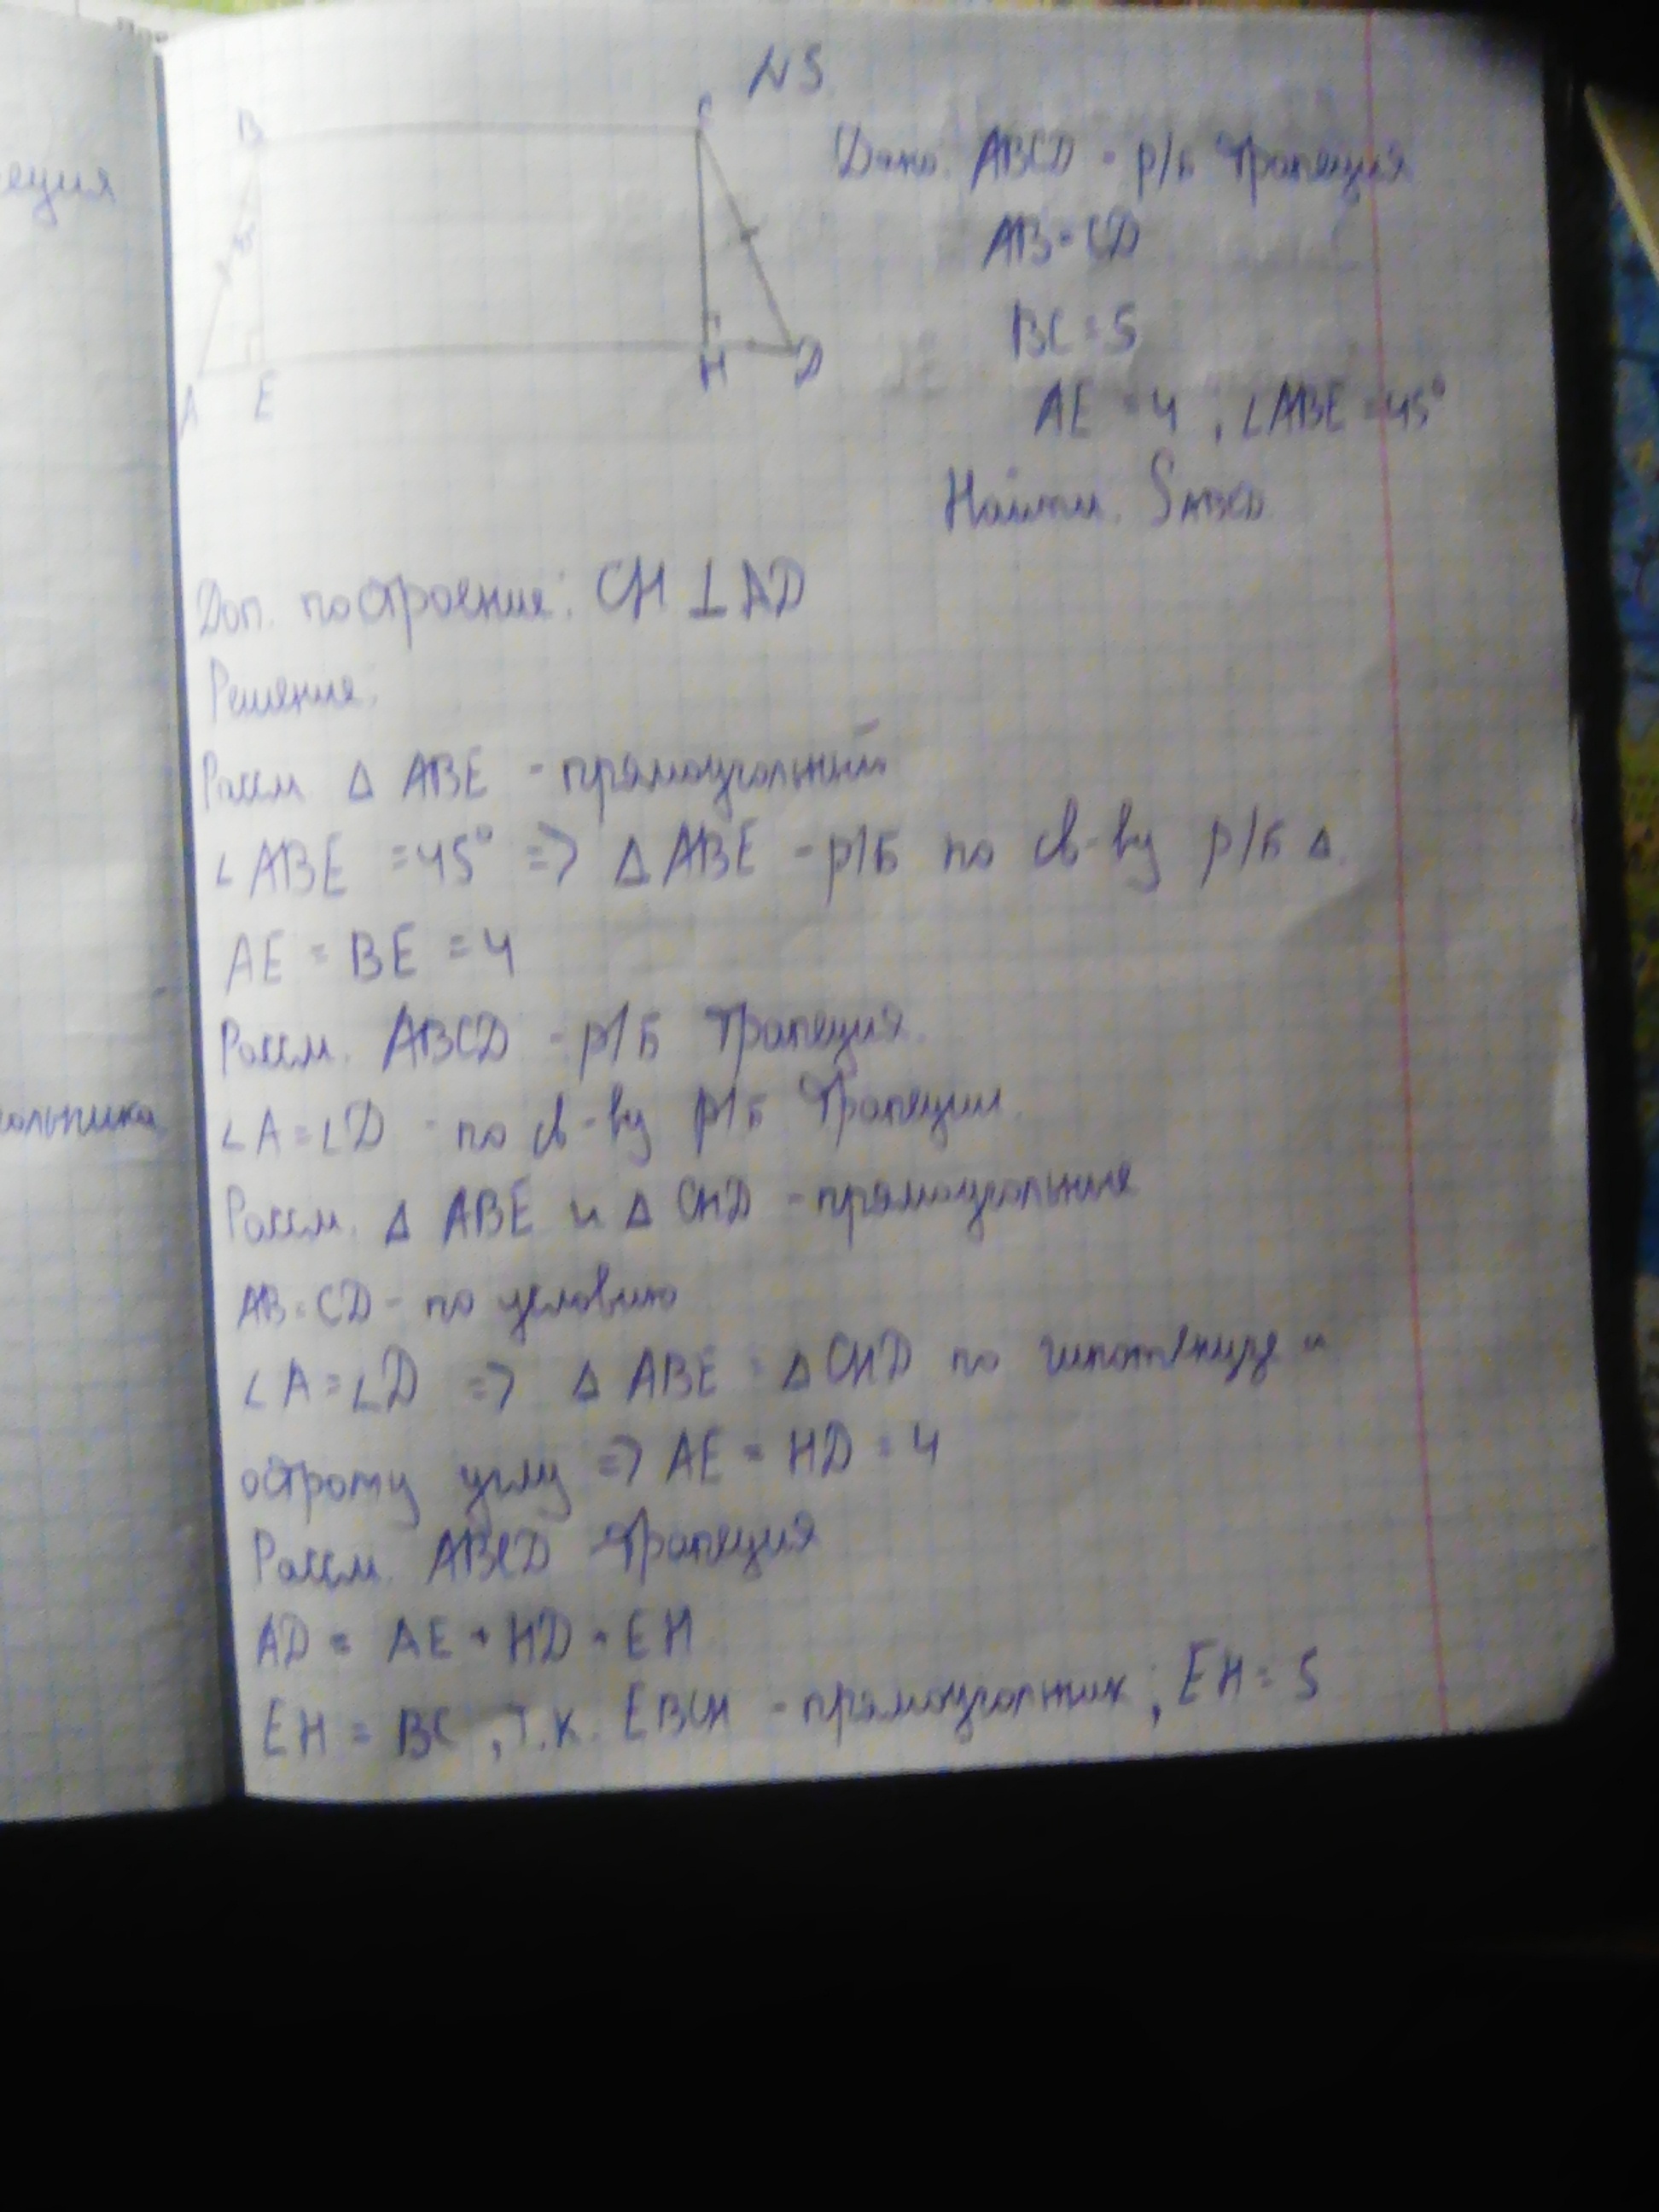 еция
ольника
N5
B
C
A
E
H
D
Дано: ABCD - р/б трапеция
AB = CD
BC = 5
AE = 4 ; ∠ABE = 45°
Найти: SABCD
Доп. построение: CH ⊥ AD
Решение:
Рассм. Δ ABE - прямоугольный
∠ABE = 45° => Δ ABE - р/б по св-ву р/б Δ.
AE = BE = 4
Рассм. ABCD - р/б трапеция.
∠A = ∠D - по св-ву р/б трапеции.
Рассм. Δ ABE и Δ CHD - прямоугольные
AB = CD - по условию
∠A = ∠D => Δ ABE = Δ CHD по гипотенузе и
острому углу => AE = HD = 4
Рассм. ABCD трапеция
AD = AE + HD + EH
EH = BC, т.к. EBCH - прямоугольник; EH = 5